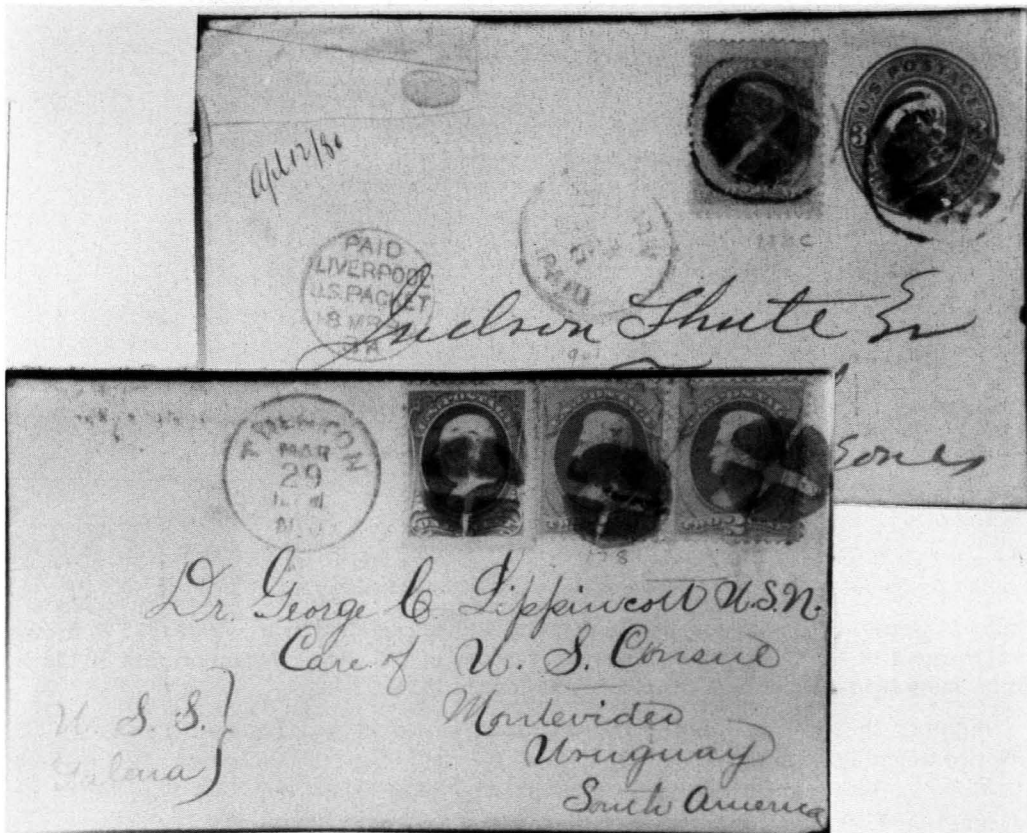 U.S. POSTAGE
Apl 12/80
178C
PAID
LIVERPOOL
U.S. PACKET
8 MR
PAID
Judson Shute Esq
TRENTON
MAR
29
178
Dr. George C. Lippincott U.S.N.
Care of U. S. Consul
Montevideo
Uruguay
South America
U. S. S.
Galena